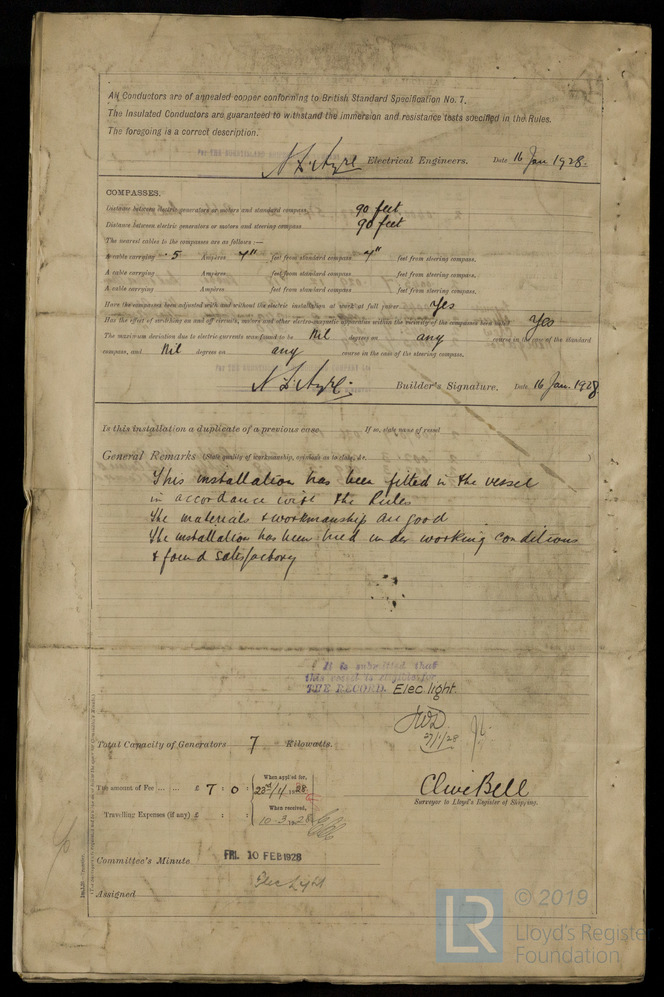 All Conductors are of annealed copper conforming to British Standard Specification No. 7.
The Insulated Conductors are guaranteed to withstand the immersion and resistance tests specified in the Rules.
The foregoing is a correct description.
Electrical Engineers. Date 16 Jan 1928.
COMPASSES.
Distance between electric generators or motors and standard compass 90 feet
Distance between electric generators or motors and steering compass 90 feet
The nearest cables to the compasses are as follows :—
A cable carrying .5 Ampères 4" feet from standard compass 4" feet from steering compass.
A cable carrying Ampères feet from standard compass feet from steering compass.
A cable carrying Ampères feet from standard compass feet from steering compass.
Have the compasses been adjusted with and without the electric installation at work at full power Yes
Has the effect of switching on and off circuits, motors and other electro-magnetic apparatus within the vicinity of the compasses been noted Yes
The maximum deviation due to electric currents was found to be Nil degrees on any course in the case of the standard
compass, and Nil degrees on any course in the case of the steering compass.
Builder's Signature. Date 16 Jan. 1928
Is this installation a duplicate of a previous case If so, state name of vessel
General Remarks (State quality of workmanship, opinions as to class, &c. )
This installation has been fitted in the vessel
in accordance with the Rules
The materials & workmanship are good
The installation has been tried under working conditions
& found satisfactory
It is submitted that
this vessel is eligible for
THE RECORD. Elec light.
JWD
27/1/28
Total Capacity of Generators 7 Kilowatts.
The amount of Fee ... ... £ 7 : 0 : When applied for, 23rd/1/1928
Travelling Expenses (if any) £ : : When received, 10.3.1928
Clive Bell
Surveyor to Lloyd's Register of Shipping.
Committee's Minute FRI. 10 FEB 1928
Assigned Elec Light
© 2019
LR
Lloyd's Register
Foundation